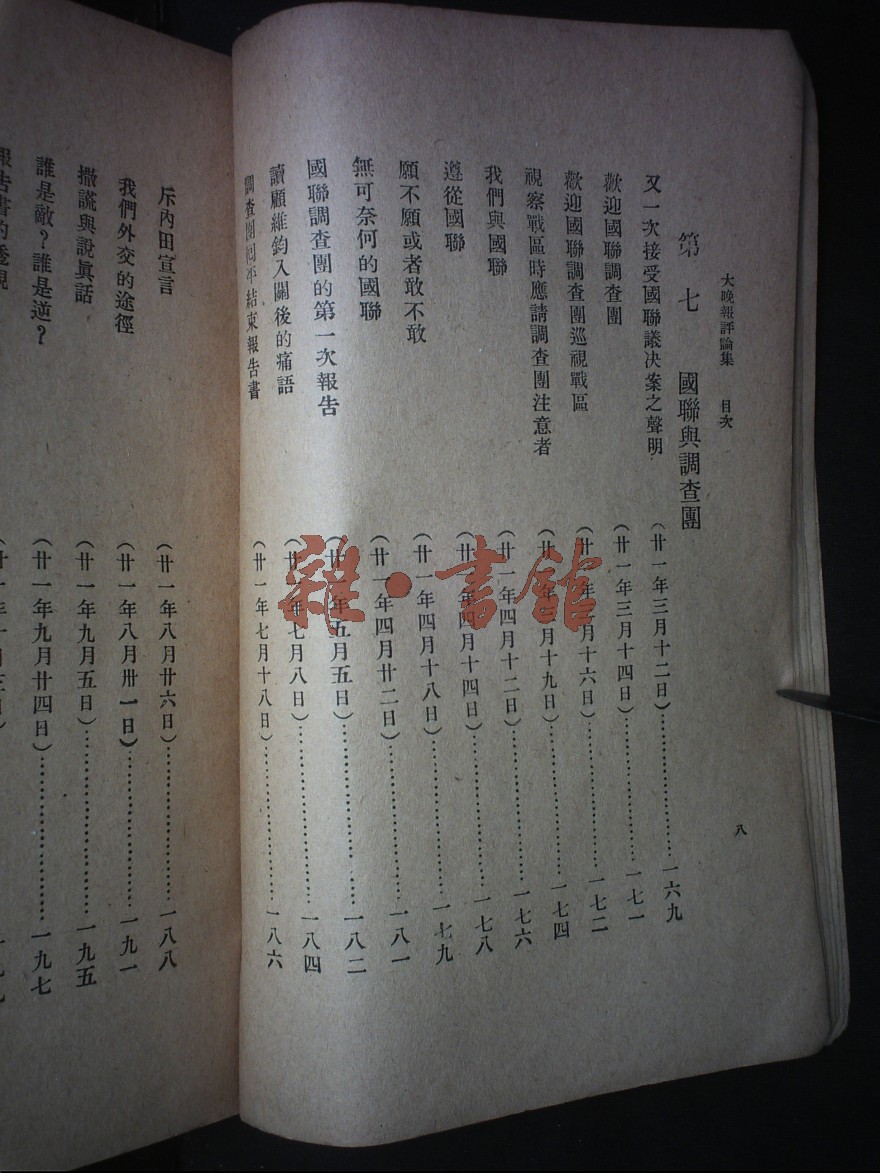 大晚報評論集　目次
八
第七　國聯與調查團
又一次接受國聯議決案之聲明（廿一年三月十二日）…………一六九
歡迎國聯調查團（廿一年三月十四日）…………一七一
歡迎國聯調查團巡視戰區（廿一年三月十六日）…………一七二
視察戰區時應請調查團注意者（廿一年三月十九日）…………一七四
我們與國聯（廿一年四月十二日）…………一七六
遵從國聯（廿一年四月十四日）…………一七八
願不願或者敢不敢（廿一年四月十八日）…………一七九
無可奈何的國聯（廿一年四月廿二日）…………一八一
國聯調查團的第一次報告（廿一年五月五日）…………一八二
讀顧維鈞入關後的痛語（廿一年七月八日）…………一八四
調查團回平結束報告書（廿一年七月十八日）…………一八六
斥內田宣言（廿一年八月廿六日）…………一八八
我們外交的途徑（廿一年八月卅一日）…………一九一
撒謊與說眞話（廿一年九月五日）…………一九五
誰是敵？誰是逆？（廿一年九月廿四日）…………一九七
報告書的透視
雜·書館